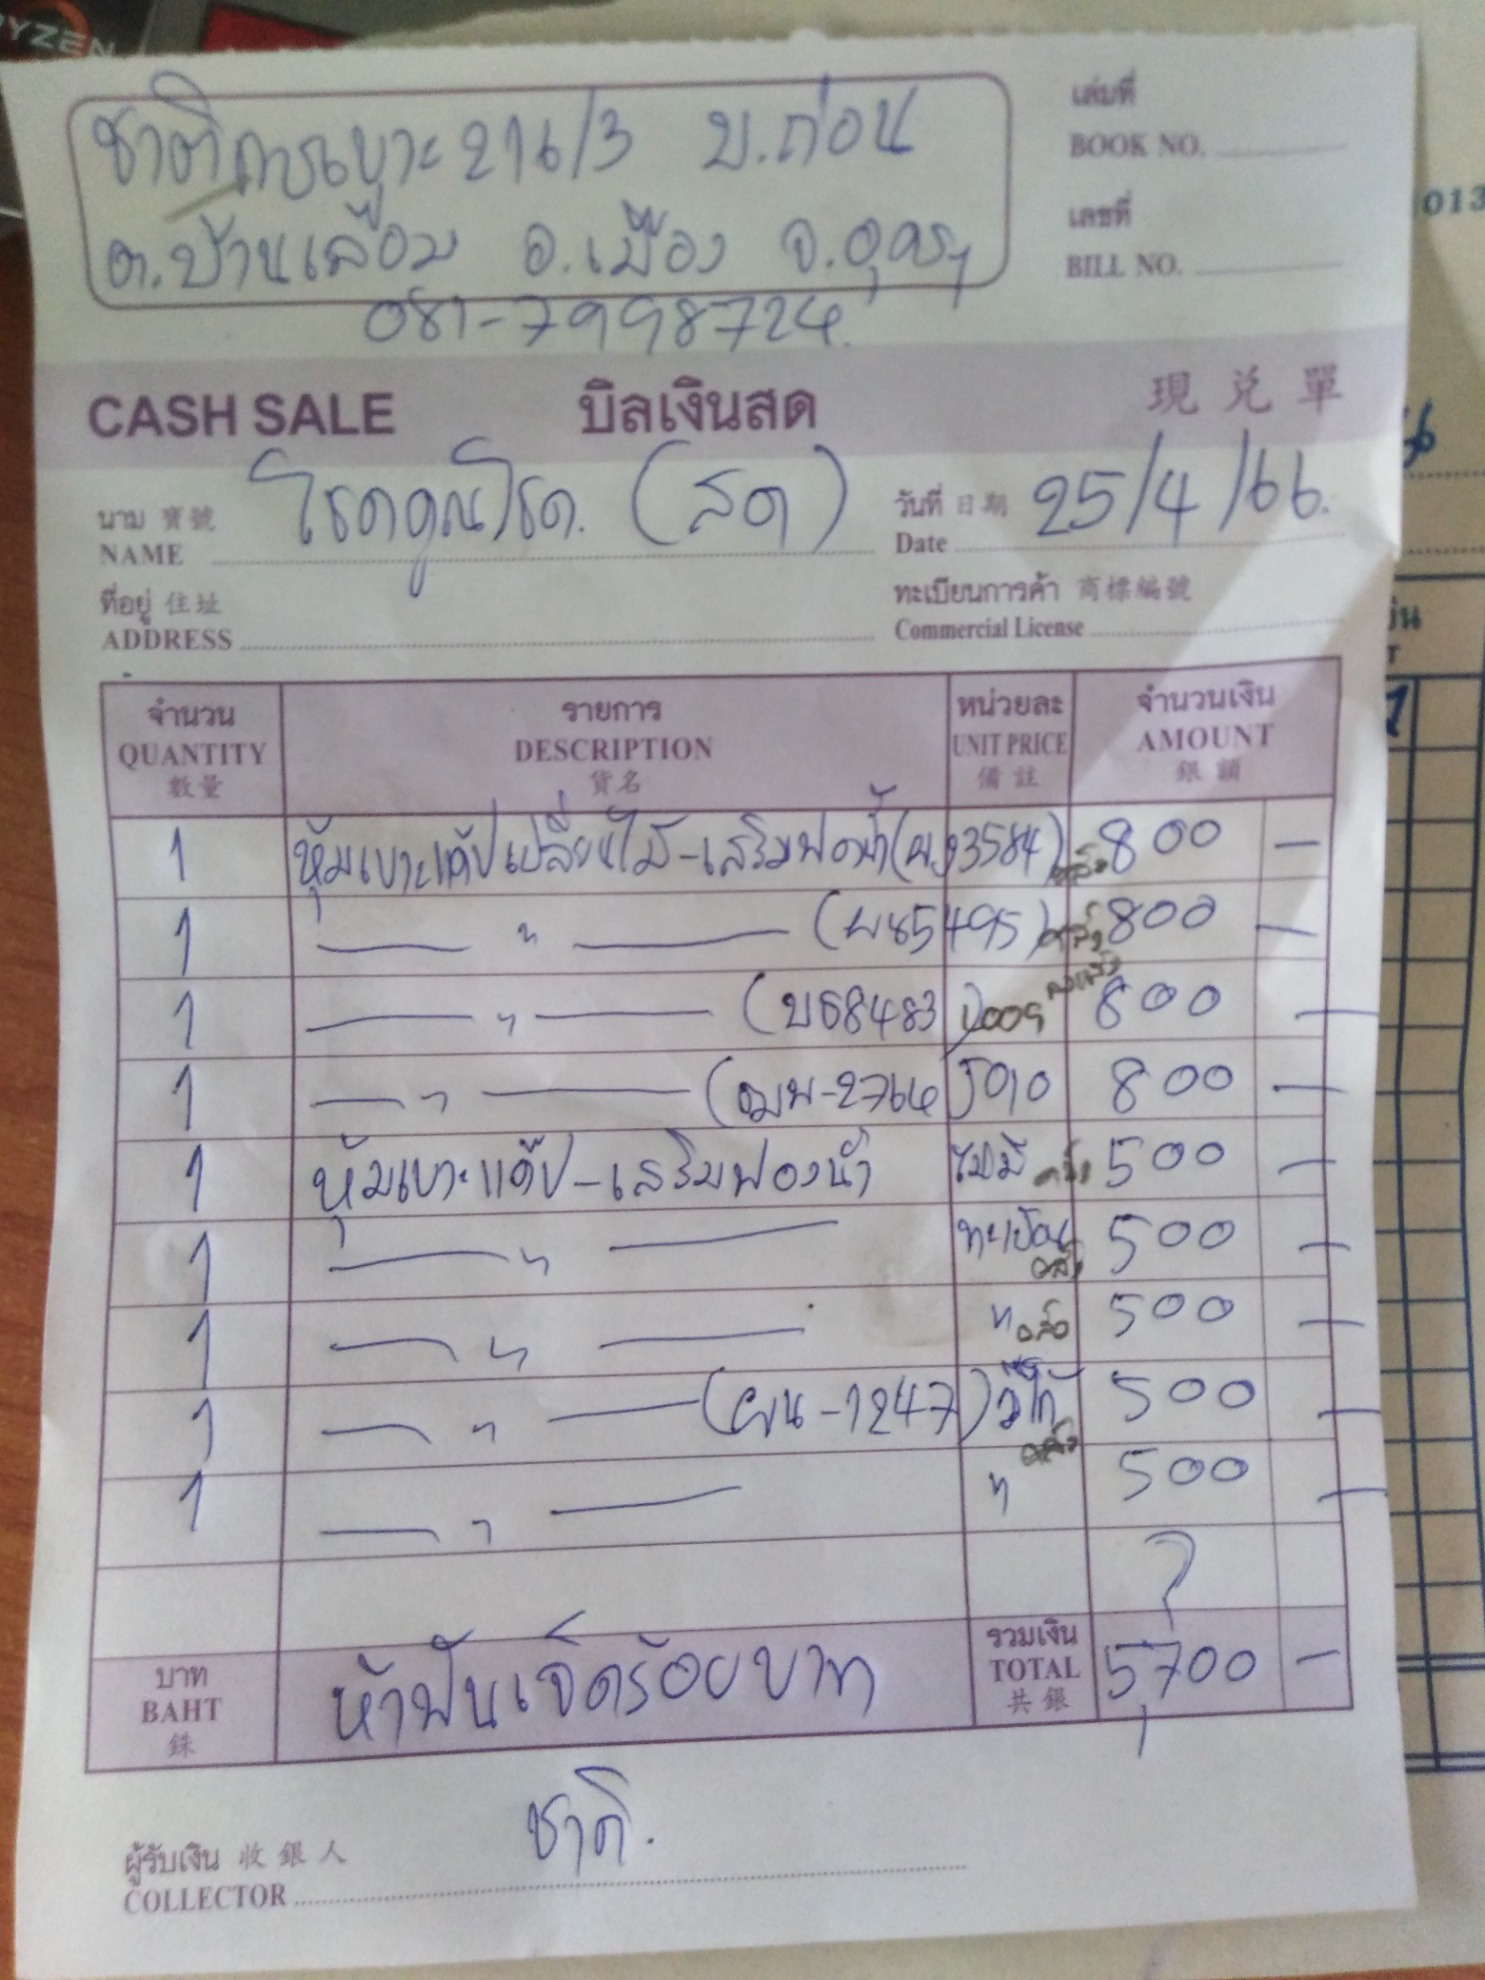 RYZEN
ชาติการเบาะ 216/3 บ.ถ่อน
ต.บ้านเลื่อม อ.เมือง จ.อุดรฯ
081-7998724
เล่มที่
BOOK NO.
เลขที่
BILL NO.
013
CASH SALE บิลเงินสด 現兌單
นาม 寶號
NAME โชคคูณโชค. (สด)
วันที่ 日期
Date 25/4/66.
ที่อยู่ 住址
ADDRESS
ทะเบียนการค้า 商標編號
Commercial License
จำนวน รายการ หน่วยละ จำนวนเงิน
QUANTITY DESCRIPTION UNIT PRICE AMOUNT
數量 貨名 備註 銀額
1 หุ้มเบาะแค๊ปเปลี่ยนไม้-เสริมฟองน้ำ 3584) 800 —
1 — " — (ผ85495) 800 —
1 — " — (บ68483) 800 —
1 — " — 2764 800 —
1 หุ้มเบาะแค๊ป-เสริมฟองน้ำ ไม่มี 500 —
1 — " — ทะเบียน 500 —
1 — " — " 500 —
1 — " — (ผน-1247) วีโก้ 500 —
1 — " — " 500 —
บาท
BAHT
銖
ห้าพันเจ็ดร้อยบาท
รวมเงิน
TOTAL
共銀
5,700 —
ผู้รับเงิน 收銀人
COLLECTOR ชาติ.